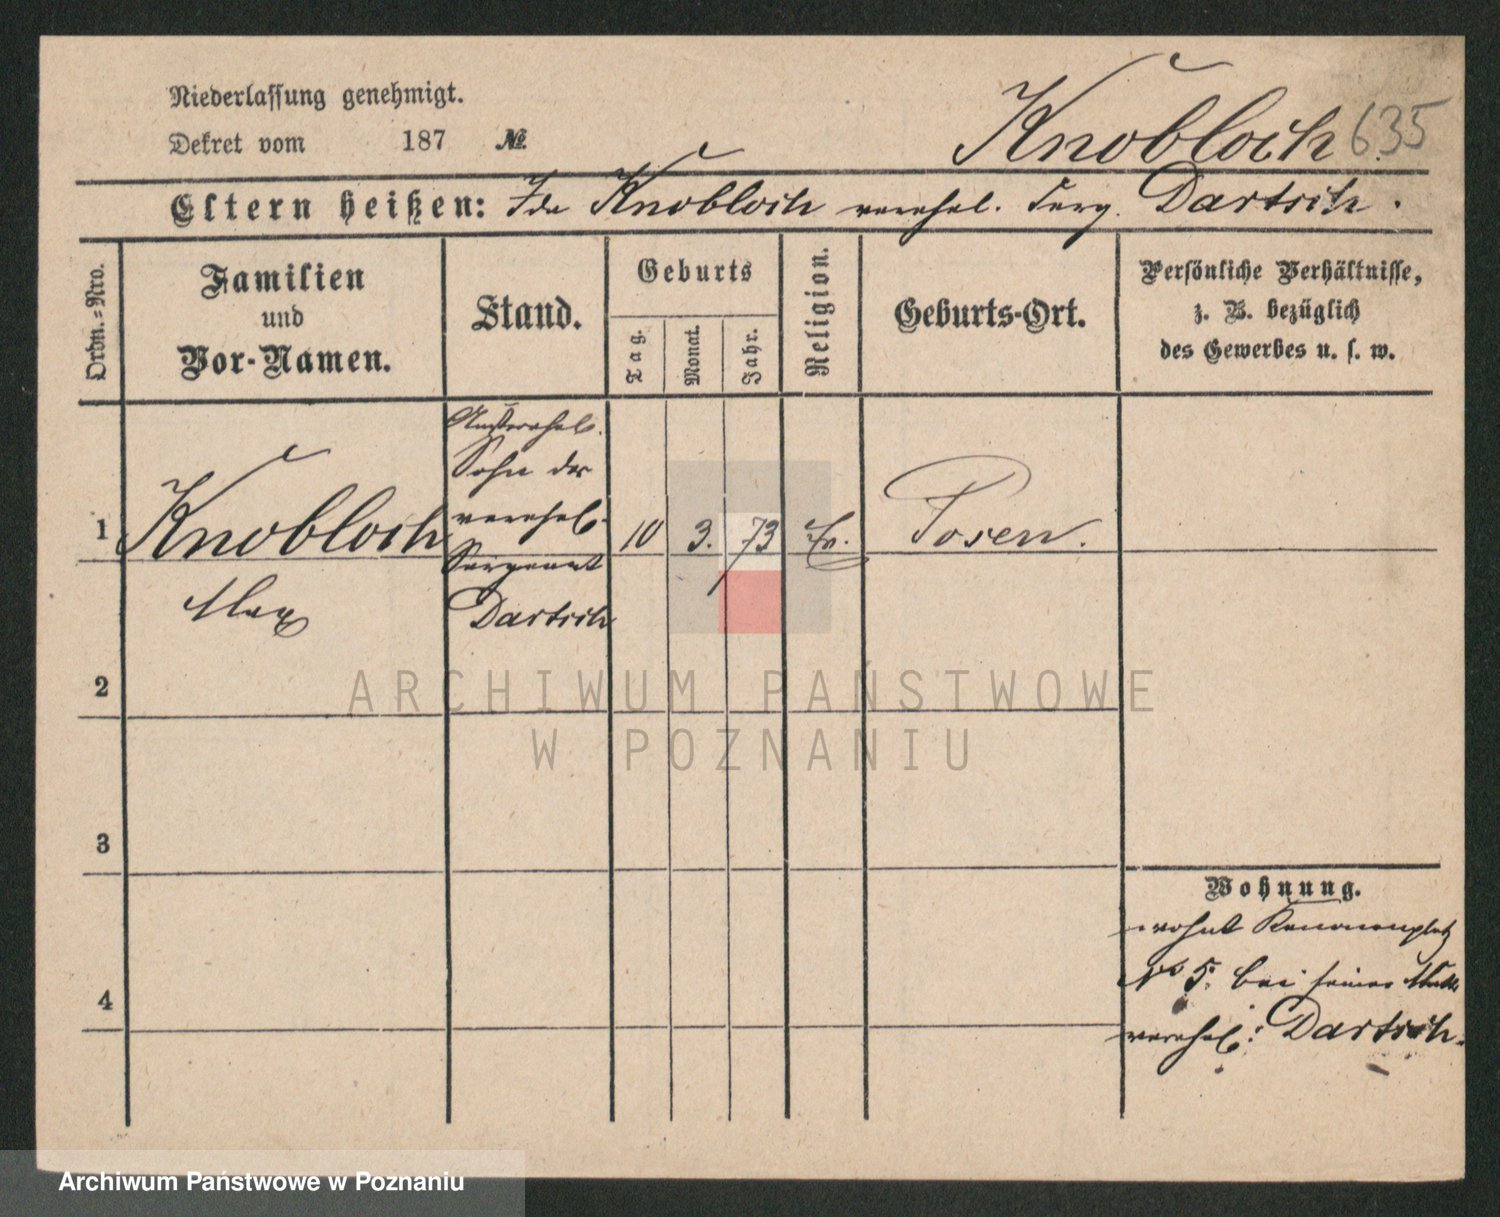 Niederlassung genehmigt.
Dekret vom 187 №
Knobloch 635
Eltern heißen: Ida Knobloch verehel. Serg. Dartsch.
Ordn.=Nro.
Familien
und
Vor-Namen.
Stand.
Geburts
Tag.
Monat.
Jahr.
Religion.
Geburts-Ort.
Persönliche Verhältnisse,
z. B. bezüglich
des Gewerbes u. s. w.
Außerehel.
Sohn der
verehel.
Sergeant
Dartsch
1 Knobloch 10 3. 73 Ev. Posen.
Max
2
3
4
Wohnung.
wohnt Kanonenplatz
No 5. bei seiner
verehel: Dartsch.
ARCHIWUM PAŃSTWOWE
W POZNANIU
Archiwum Państwowe w Poznaniu